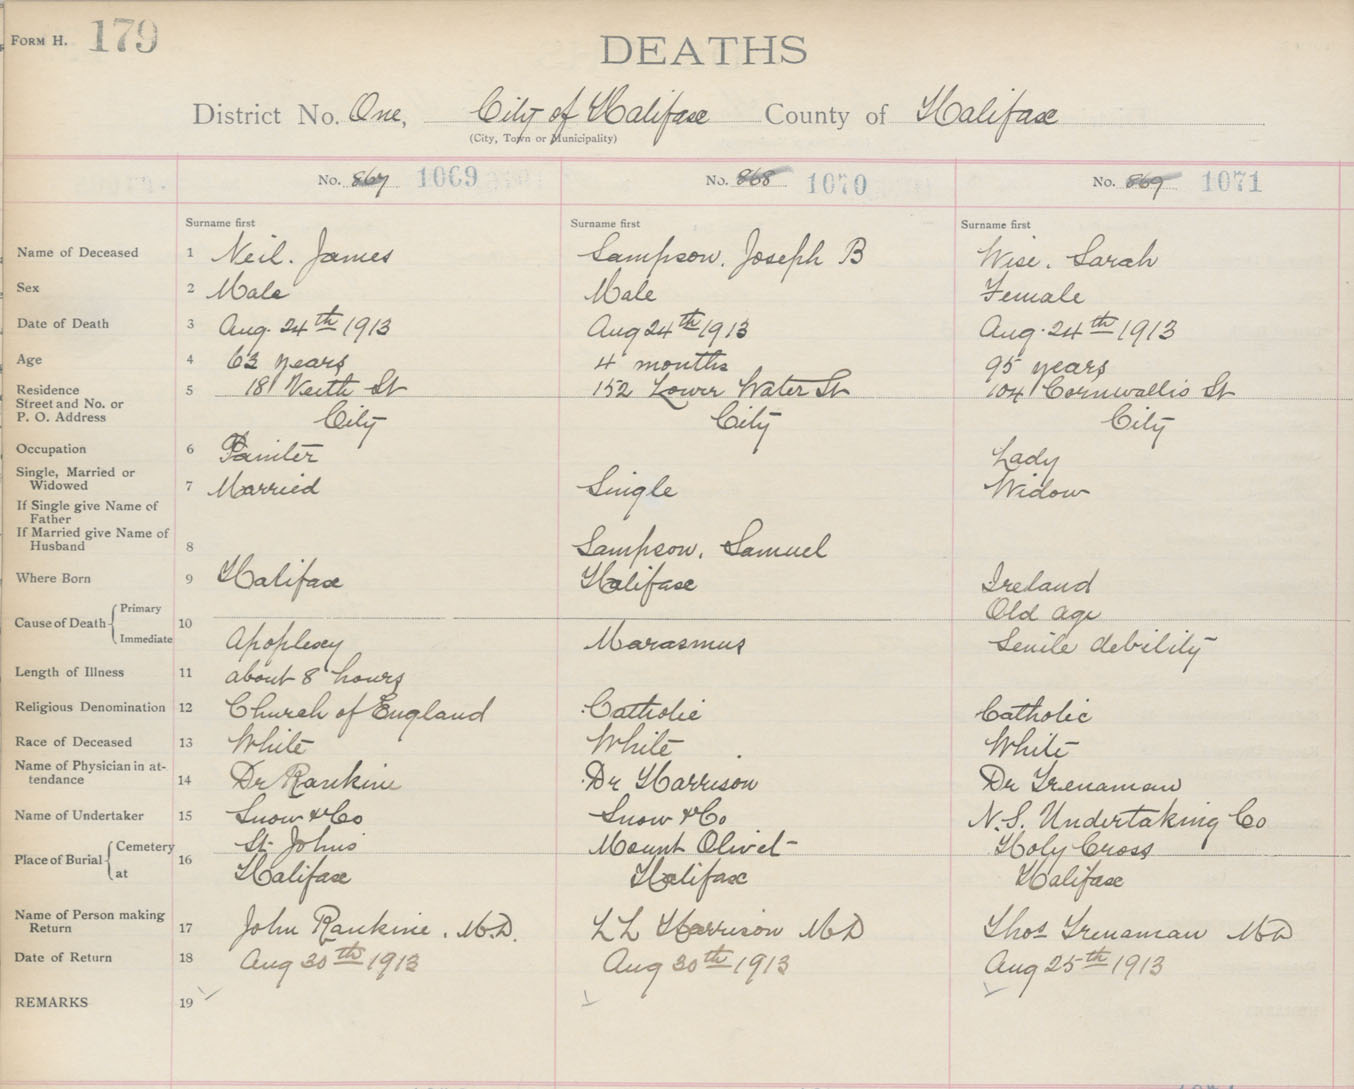 FORM H. 179
DEATHS
District No. One, City of Halifax County of Halifax
(City, Town or Municipality)
No. 867 1069 No. 868 1070 No. 869 1071
Surname first Surname first Surname first
Name of Deceased 1 Neil. James Sampson. Joseph B Wise. Sarah
Sex 2 Male Male Female
Date of Death 3 Aug. 24th 1913 Aug 24th 1913 Aug. 24th 1913
Age 4 63 years 4 months 95 years
Residence 5 181 Veith St 152 Lower Water St 104 Cornwallis St
Street and No. or
P. O. Address City City City
Occupation 6 Painter Lady
Single, Married or
Widowed 7 Married Single Widow
If Single give Name of
Father
If Married give Name of
Husband 8 Sampson. Samuel
Where Born 9 Halifax Halifax Ireland
Cause of Death Primary 10 Old age
Immediate Apoplexy Marasmus Senile debility
Length of Illness 11 about 8 hours
Religious Denomination 12 Church of England Catholic Catholic
Race of Deceased 13 White White White
Name of Physician in at-
tendance 14 Dr Rankine Dr Harrison Dr Trenaman
Name of Undertaker 15 Snow & Co Snow & Co N.S. Undertaking Co
Place of Burial Cemetery 16 St. Johns Mount Olivet Holy Cross
at Halifax Halifax Halifax
Name of Person making
Return 17 John Rankine. M.D. LL Harrison MD Thos Trenaman MD
Date of Return 18 Aug 30th 1913 Aug 30th 1913 Aug 25th 1913
REMARKS 19